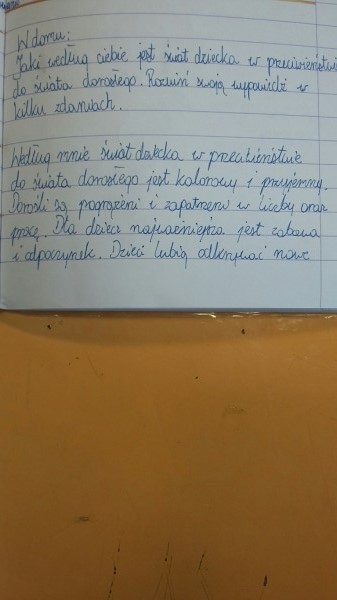 W domu:
Jaki według ciebie jest świat dziecka w przeciwieństwie
do świata dorosłego. Rozwiń swoją wypowiedź w
kilku zdaniach.
Według mnie świat dziecka w przeciwieństwie
do świata dorosłego jest kolorowy i przyjemny.
Dorośli są pogrążeni i zapatrzeni w liczby oraz
pracę. Dla dzieci najważniejsza jest zabawa
i odpoczynek. Dzieci lubią odkrywać nowe